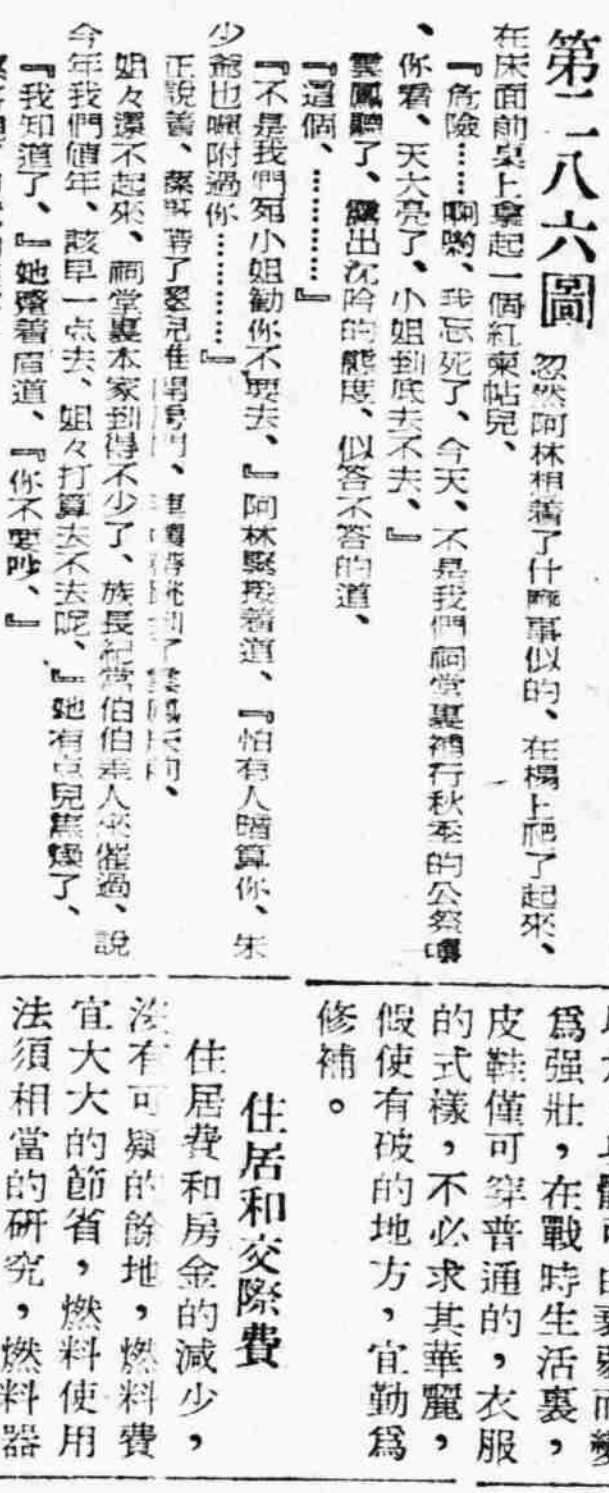 第二八六圖
忽然阿林想着了什麼事似的、在榻上爬了起來、
在床面前桌上拿起一個紅柬帖兒、
『危險……啊喲、我忘死了、今天、不是我們祠堂裏補行秋季的公祭嚜
、你看、天大亮了、小姐到底去不去、』
雲鳳聽了、露出沈吟的態度、似答不答的道、
『這個、…………』
『不是我們宛小姐勸你不要去、』阿林緊接着道、『怕有人暗算你、朱
少爺也囑附過你…………』
正說着、
姐々還不起來、祠堂裏本家到得不少了、族長紀常伯伯差人來催過、說
今年我們值年、該早一点去、姐々打算去不去呢、』她有点兒焦燥了、
『我知道了、』她蹙着眉道、『你不要吵、』
爲强壯，在戰時生活裏，
皮鞋僅可穿普通的，衣服
的式樣，不必求其華麗，
假使有破的地方，宜勤爲
修補。
住居和交際費
住居費和房金的減少，
沒有可疑的餘地，燃料費
宜大大的節省，燃料使用
法須相當的研究，燃料器